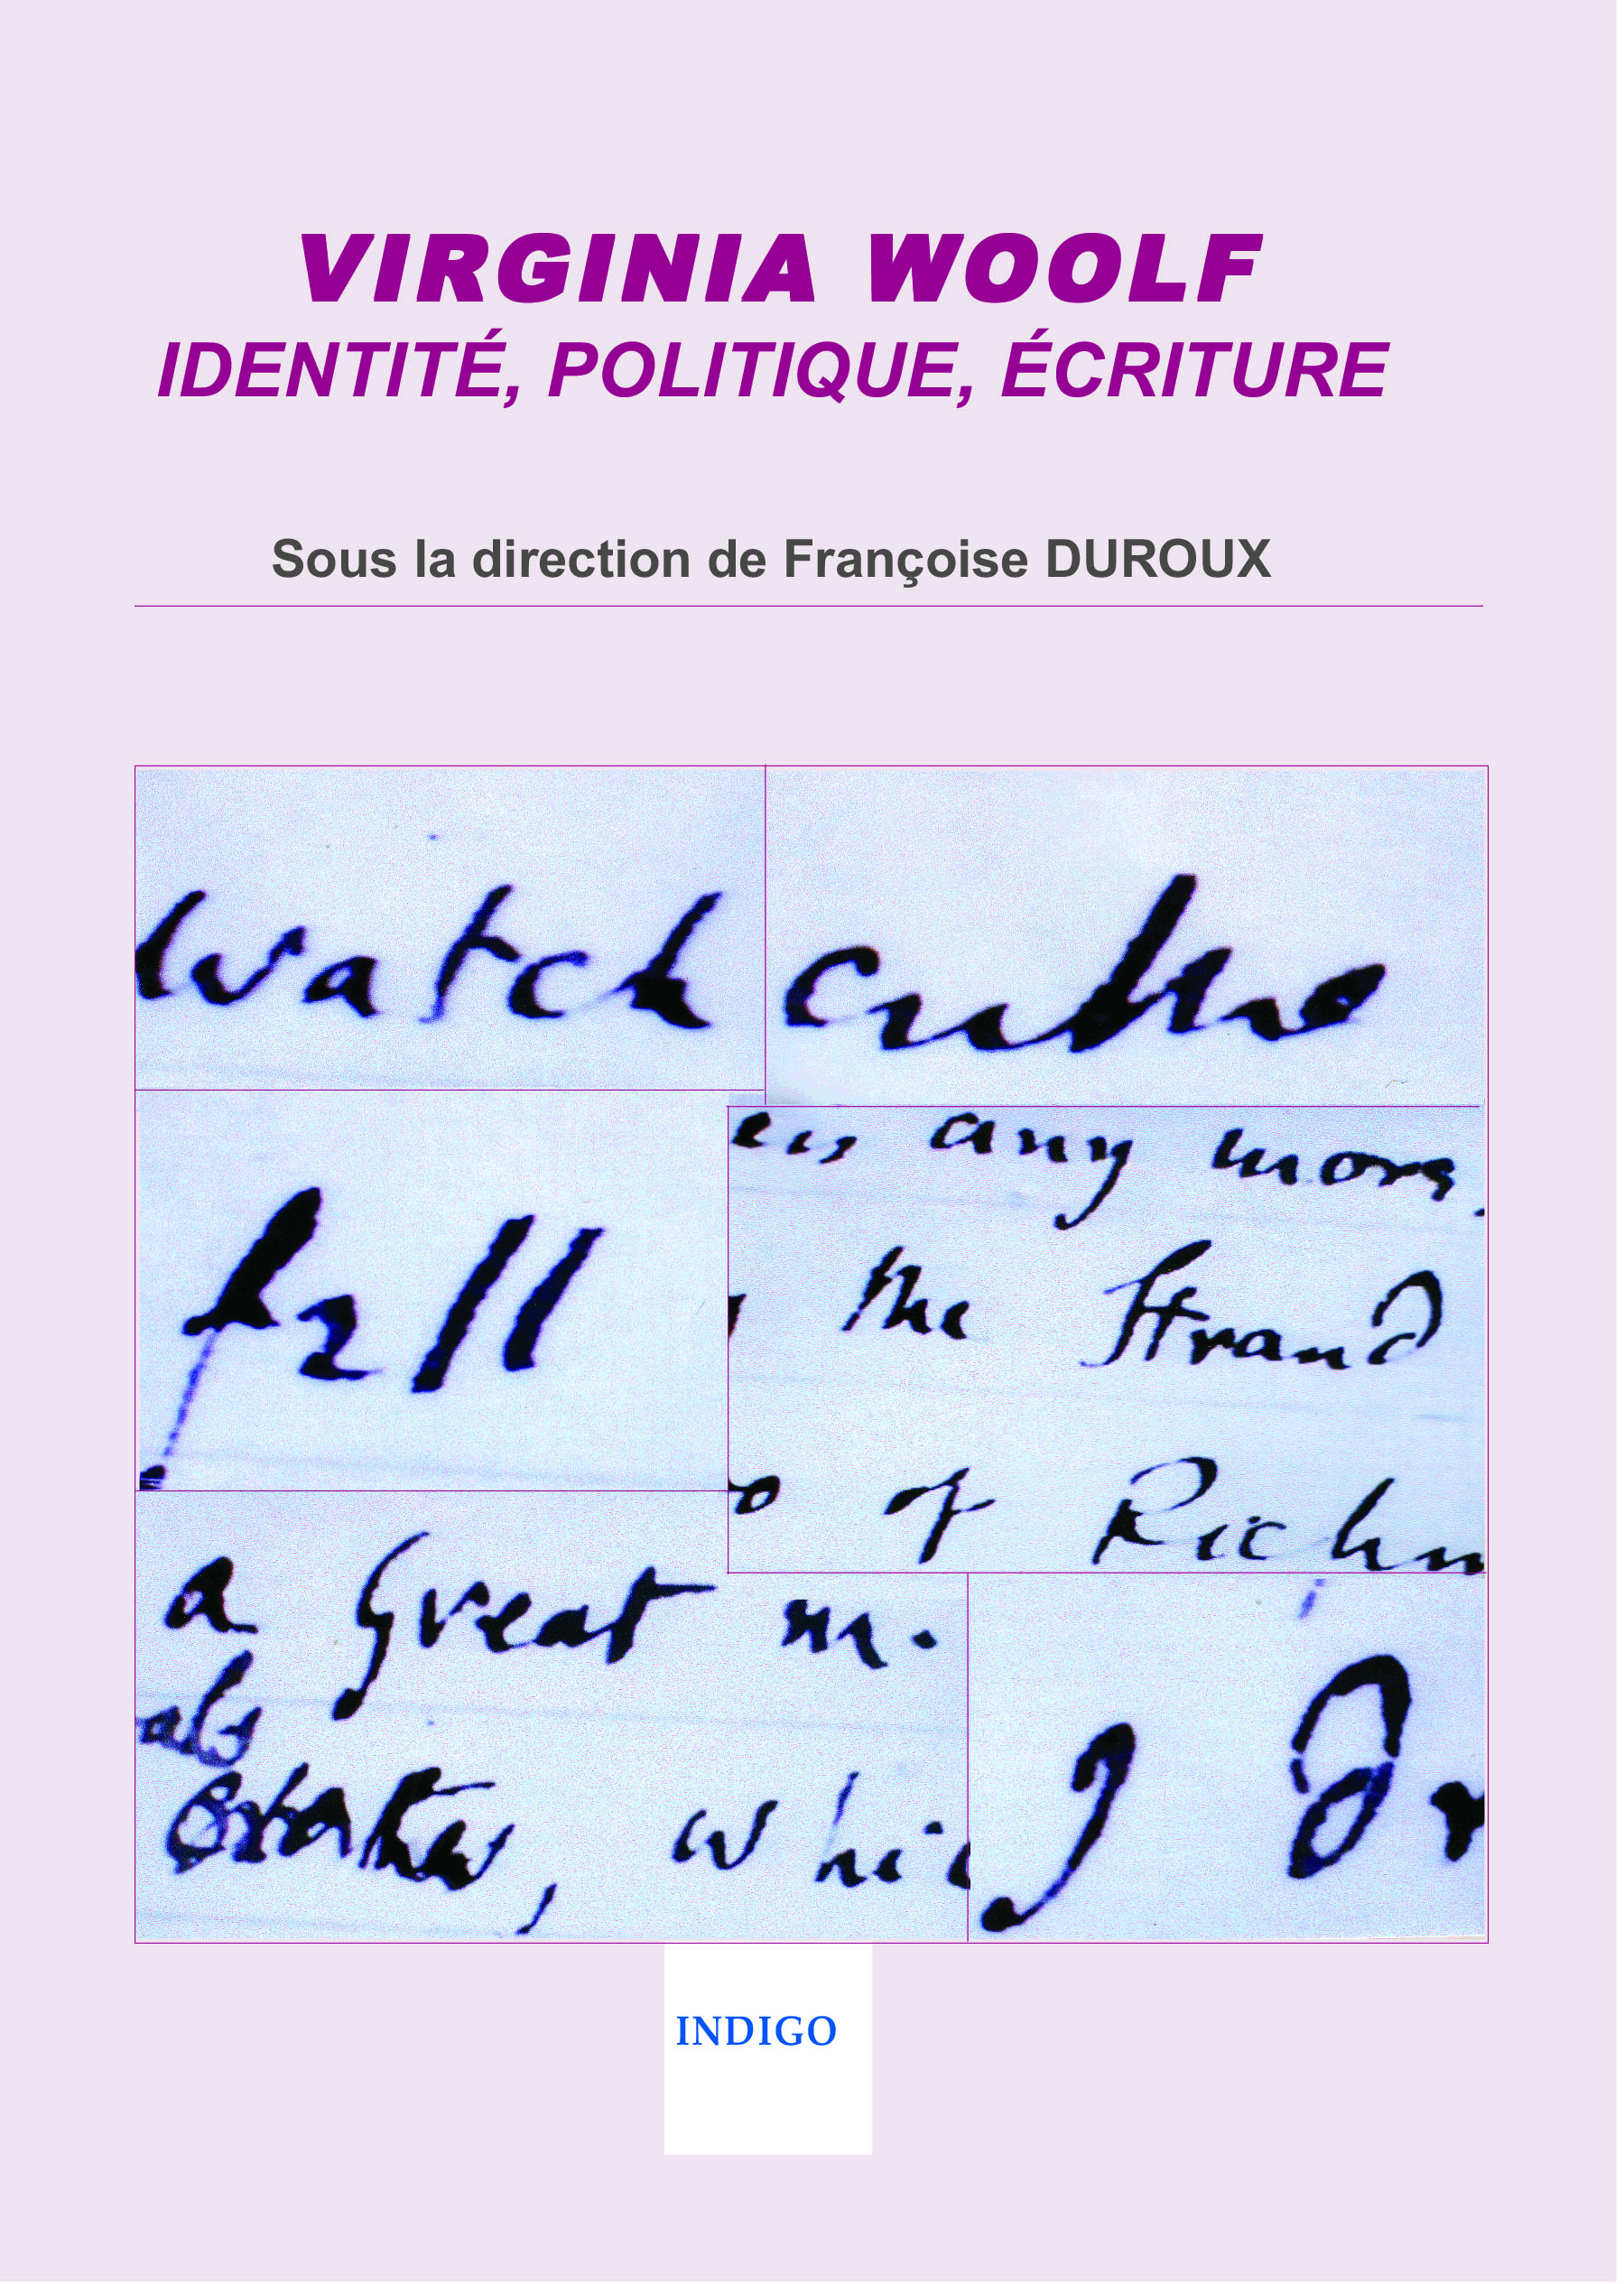 VIRGINIA WOOLF
IDENTITÉ, POLITIQUE, ÉCRITURE
Sous la direction de Françoise DUROUX
watch
fell
any more
the Strand
of Richm
a great m.
whic
I
INDIGO